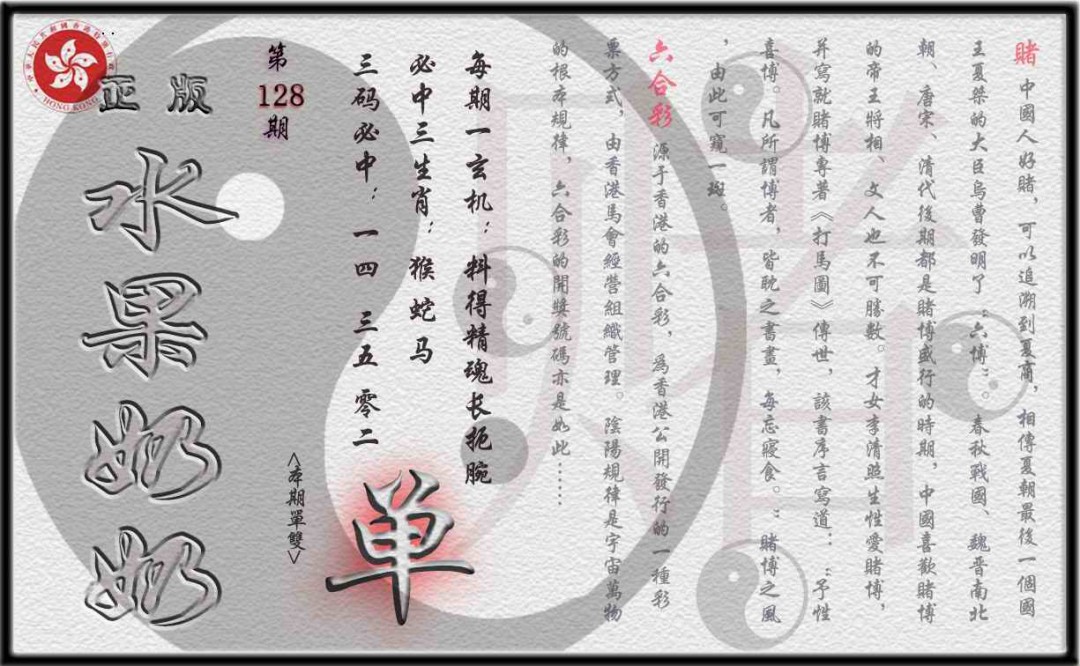 賭 中國人好賭，可以追溯到夏商，相傳夏朝最後一個國
王夏桀的大臣烏曹發明了“六博”。春秋戰國、魏晉南北
朝、唐宋、清代後期都是賭博盛行的時期，中國喜歡賭博
的帝王將相、文人也不可勝數。才女李清照生性愛賭博，
并寫就賭博專著《打馬圖》傳世，該書序言寫道：“予性
喜博。凡所謂博者，皆耽之晝晝，每忘寢食。”賭博之風
，由此可窺一斑。
六合彩 源于香港的六合彩，為香港公開發行的一種彩
票方式，由香港馬會經營組織管理。陰陽規律是宇宙萬物
的根本規律，六合彩的開獎號碼亦是如此……
每期一玄机：料得精魂长扼腕
必中三生肖：猴蛇马
三码必中：一四 三五 零二
单
<本期單雙>
第
128
期
正版
水果奶奶
HONG KONG